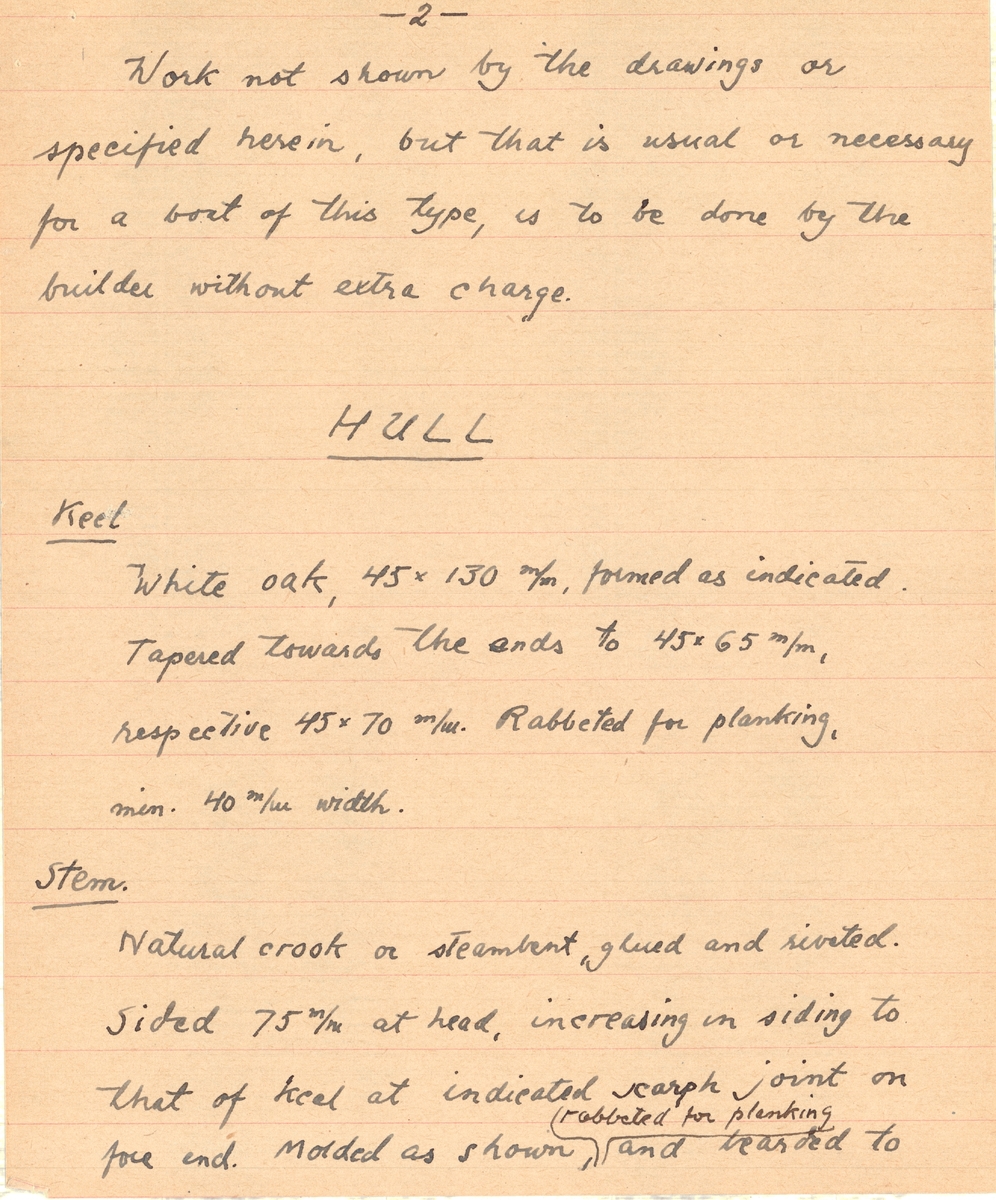 —2—
Work not shown by the drawings or
specified herein, but that is usual or necessary
for a boat of this type, is to be done by the
builder without extra charge.
HULL
Keel
White oak, 45 x 130 m/m, formed as indicated.
Tapered towards the ends to 45 x 65 m/m,
respective 45 x 70 m/m. Rabbeted for planking,
min. 40 m/m width.
Stem.
Natural crook or steambent, glued and riveted.
Sided 75 m/m at head, increasing in siding to
that of keel at indicated scarph joint on
rabbeted for planking
fore end. Molded as shown, and bearded to